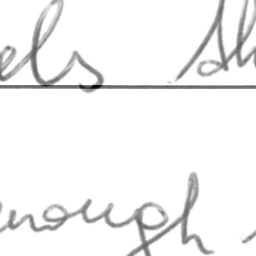 els sh
enough